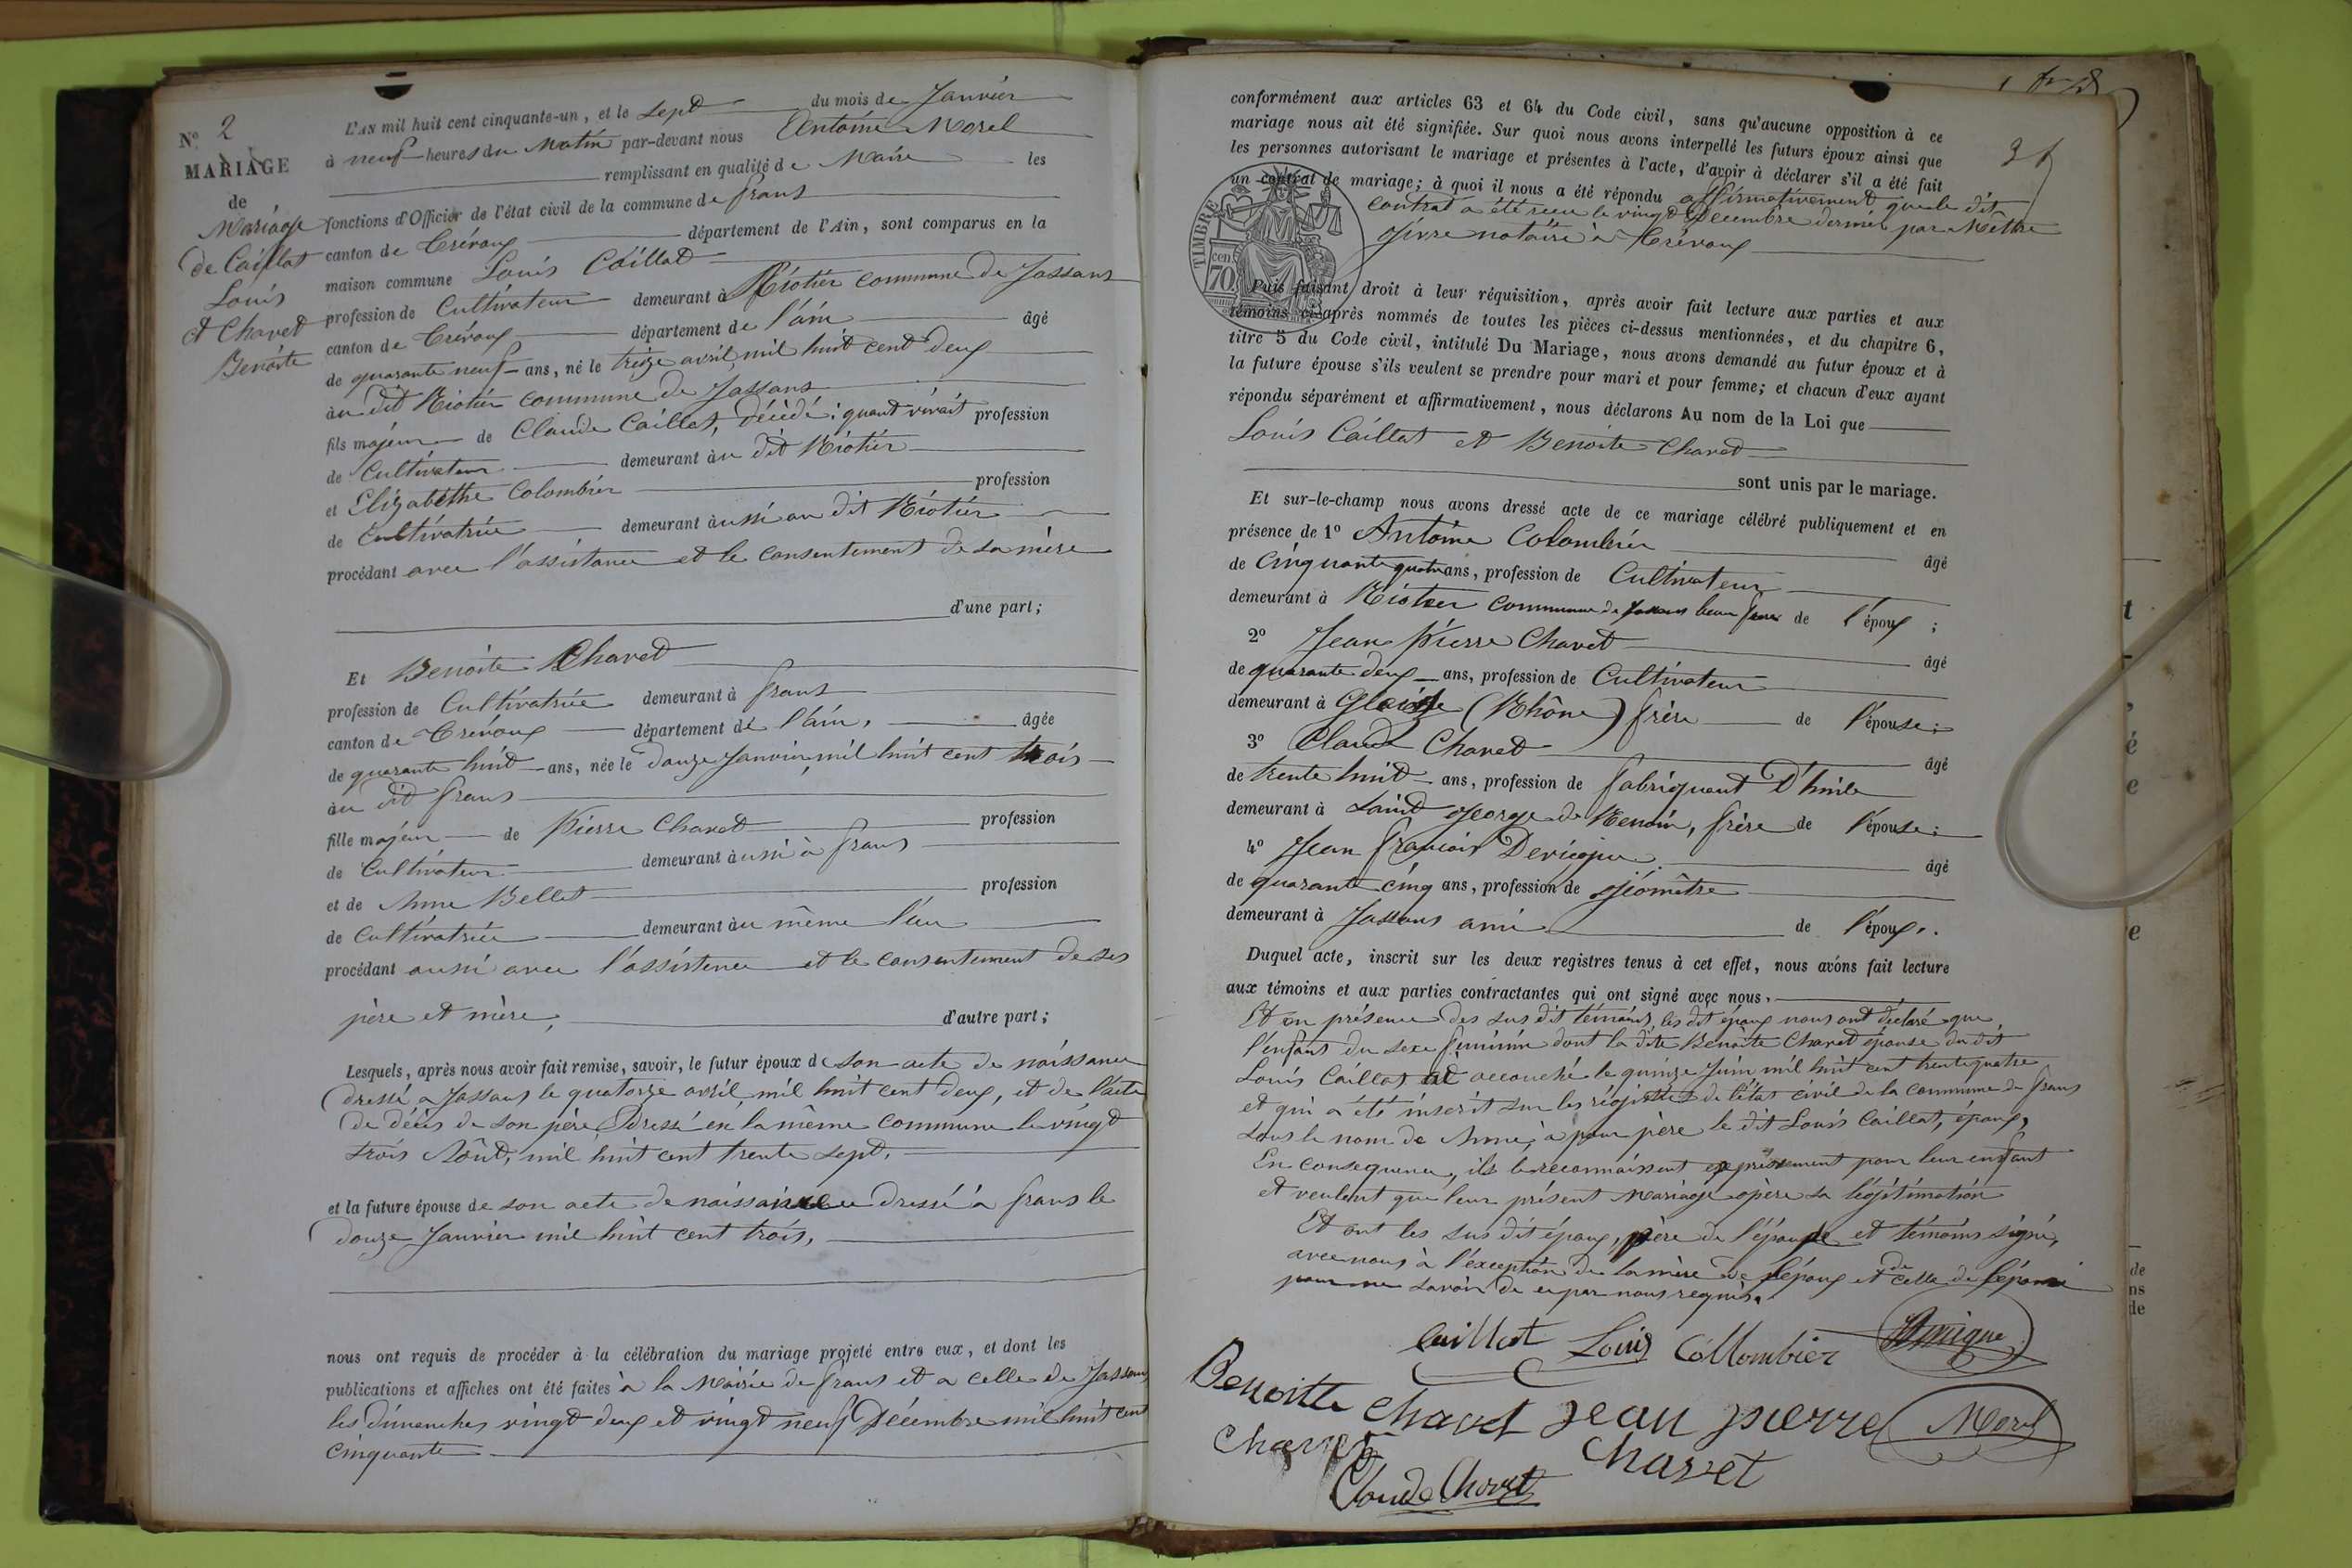 N.º 2
MARIAGE
de
Mariage
de Caillat
Louis
et Chavet
Benoite
L'AN mil huit cent cinquante-un, et le sept du mois de Janvier
à neuf heures du Matin par-devant nous Antoine Morel
remplissant en qualité de Maire les
fonctions d'Officier de l'état civil de la commune de frans
canton de Trévoux département de l'Ain, sont comparus en la
maison commune Louis Caillat
profession de Cultivateur demeurant à Riotier commune de Jassans
canton de Trévoux département de l'ain âgé
de quarante neuf ans, né le treize avril mil huit cent deux
au dit Riotier commune de Jassans
fils majeur de Claude Caillat, décédé; quant vivait profession
de Cultivateur demeurant au dit Riotier
et Elizabethe Colombier profession
de Cultivatrice demeurant aussi au dit Riotier
procédant avec l'assistance et le consentement de sa mère
d'une part;
Et Benoite Chavet
profession de Cultivatrice demeurant à frans
canton de Trévoux département de l'ain, âgée
de quarante huit ans, née le douze Janvier mil huit cent trois
au dit frans
fille majeur de Pierre Chavet profession
de Cultivateur demeurant aussi à frans
et de Anne Bellet profession
de Cultivatrice demeurant au même lieu
procédant aussi avec l'assistence et le consentement de ses
père et mère, d'autre part;
Lesquels, après nous avoir fait remise, savoir, le futur époux de son acte de naissance
dressé a Jassans le quatorze avril mil huit cent deux, et de l'acte
de décès de son père dressé en la même commune le vingt
trois Août, mil huit cent trente sept.
et la future épouse de son acte de naissance dressé à frans le
douze Janvier mil huit cent trois,
nous ont requis de procéder à la célébration du mariage projeté entre eux, et dont les
publications et affiches ont été faites à la Mairie de frans et a celle de Jassans
les dimanches vingt deux et vingt neuf Décembre mil huit cent
cinquante
conformément aux articles 63 et 64 du Code civil, sans qu'aucune opposition à ce
mariage nous ait été signifiée. Sur quoi nous avons interpellé les futurs époux ainsi que
les personnes autorisant le mariage et présentes à l'acte, d'avoir à déclarer s'il a été fait
un contrat de mariage; à quoi il nous a été répondu affirmativement que le dit
contrat a été recu le vingt Décembre dernier par Mettre
notaire à Trévoux
TIMBRE
cen
70.
Puis faisant droit à leur réquisition, après avoir fait lecture aux parties et aux
témoins ci-après nommés de toutes les pièces ci-dessus mentionnées, et du chapitre 6,
titre 5 du Code civil, intitulé Du Mariage, nous avons demandé au futur époux et à
la future épouse s'ils veulent se prendre pour mari et pour femme; et chacun d'eux ayant
répondu séparément et affirmativement, nous déclarons Au nom de la Loi que
Louis Caillat et Benoite Chavet
sont unis par le mariage.
Et sur-le-champ nous avons dressé acte de ce mariage célébré publiquement et en
présence de 1º Antoine Colombier âgé
de Cinquante quatre ans, profession de Cultivateur
demeurant à Riotier commune de Jassans beau frere de l'époux;
2º Jean Pierre Chavet âgé
de quarante deux ans, profession de Cultivateur
demeurant à Gleizé (Rhône) frère de l'épouse;
3º Claude Chavet âgé
de trente huit ans, profession de fabriquant D'huile
demeurant à saint George de Renein, frère de l'épouse;
4º Jean françois âgé
de quarante cinq ans, profession de Géomètre
demeurant à Jassans ami de l'époux.
Duquel acte, inscrit sur les deux registres tenus à cet effet, nous avons fait lecture
aux témoins et aux parties contractantes qui ont signé avec nous.
Et en présence des sus dit témoins, les dit époux nous ont declaré que
l'enfant du sexe feminin dont la dite Benoite Chavet épouse du dit
Louis Caillat est accouché le quinze Juin mil huit cent trente quatre
et qui a été inscrit sur les régistres de l'état civil de la commune de frans
sous le nom de Anne, à pour père le dit Louis Caillat, époux,
En consequence, ils le reconnaissent expressement pour leur enfant
et veulent que leur présent Mariage opère sa légitimation
Et ont les sus dit époux, père de l'épouse et témoins signé,
avec nous à l'exception de la mère de l'époux et de celle de l'épouse
pour ne savoir de ce par nous requis.
Caillat Louis Collombier
Benoitte Chavet Jean pierre Morel
Chavet Charvet
Claude Chavet